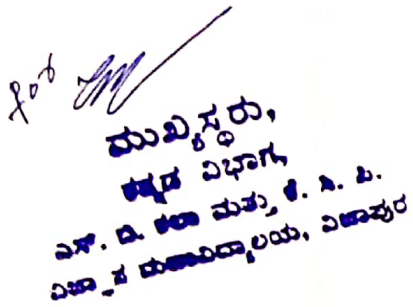 for
ಮುಖ್ಯಸ್ಥರು,
ಕನ್ನಡ ವಿಭಾಗ,
ಎಸ್. ಬಿ. ಕಲಾ ಮತ್ತು ಕೆ. ಸಿ. ಪಿ.
ವಿಜ್ಞಾನ ಮಹಾವಿದ್ಯಾಲಯ, ವಿಜಾಪುರ